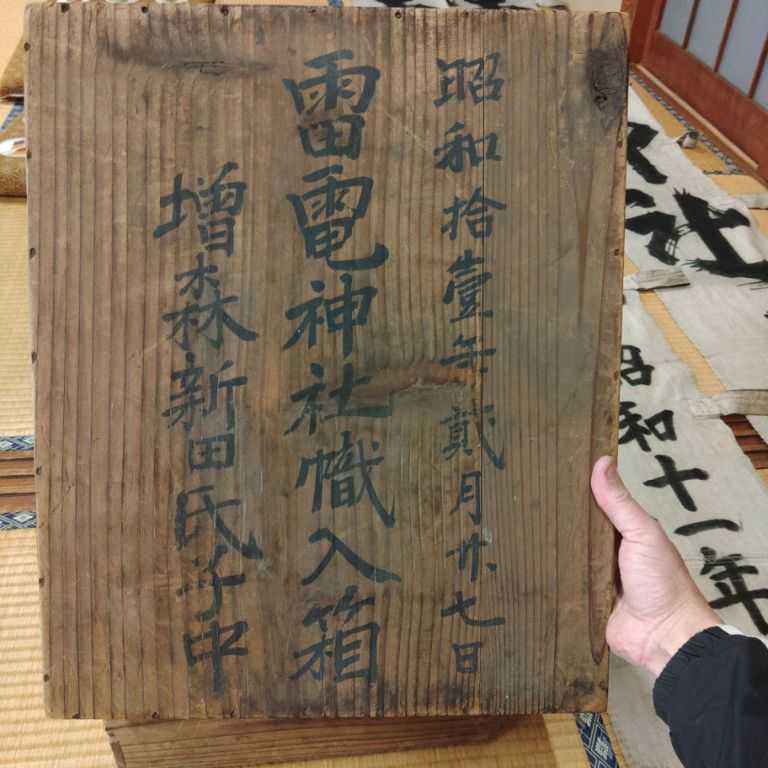 昭和拾壹年貮月廿七日
雷電神社幟入箱
増森新田氏子中
社
昭和十一年